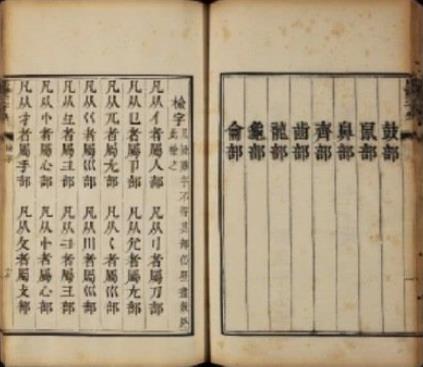 鼓部
鼠部
鼻部
齊部
齒部
龍部
龜部
龠部
檢字
凡从亻者屬人部 凡从刂者屬刀部
凡从㔾者屬卩部 凡从尣者屬尢部
凡从兀者屬尢部 凡从𡿨者屬巛部
凡从巜者屬巛部 凡从川者屬巛部
凡从彑者屬彐部 凡从⺕者屬彐部
凡从忄者屬心部 凡从㣺者屬心部
凡从扌者屬手部 凡从攵者屬攴部